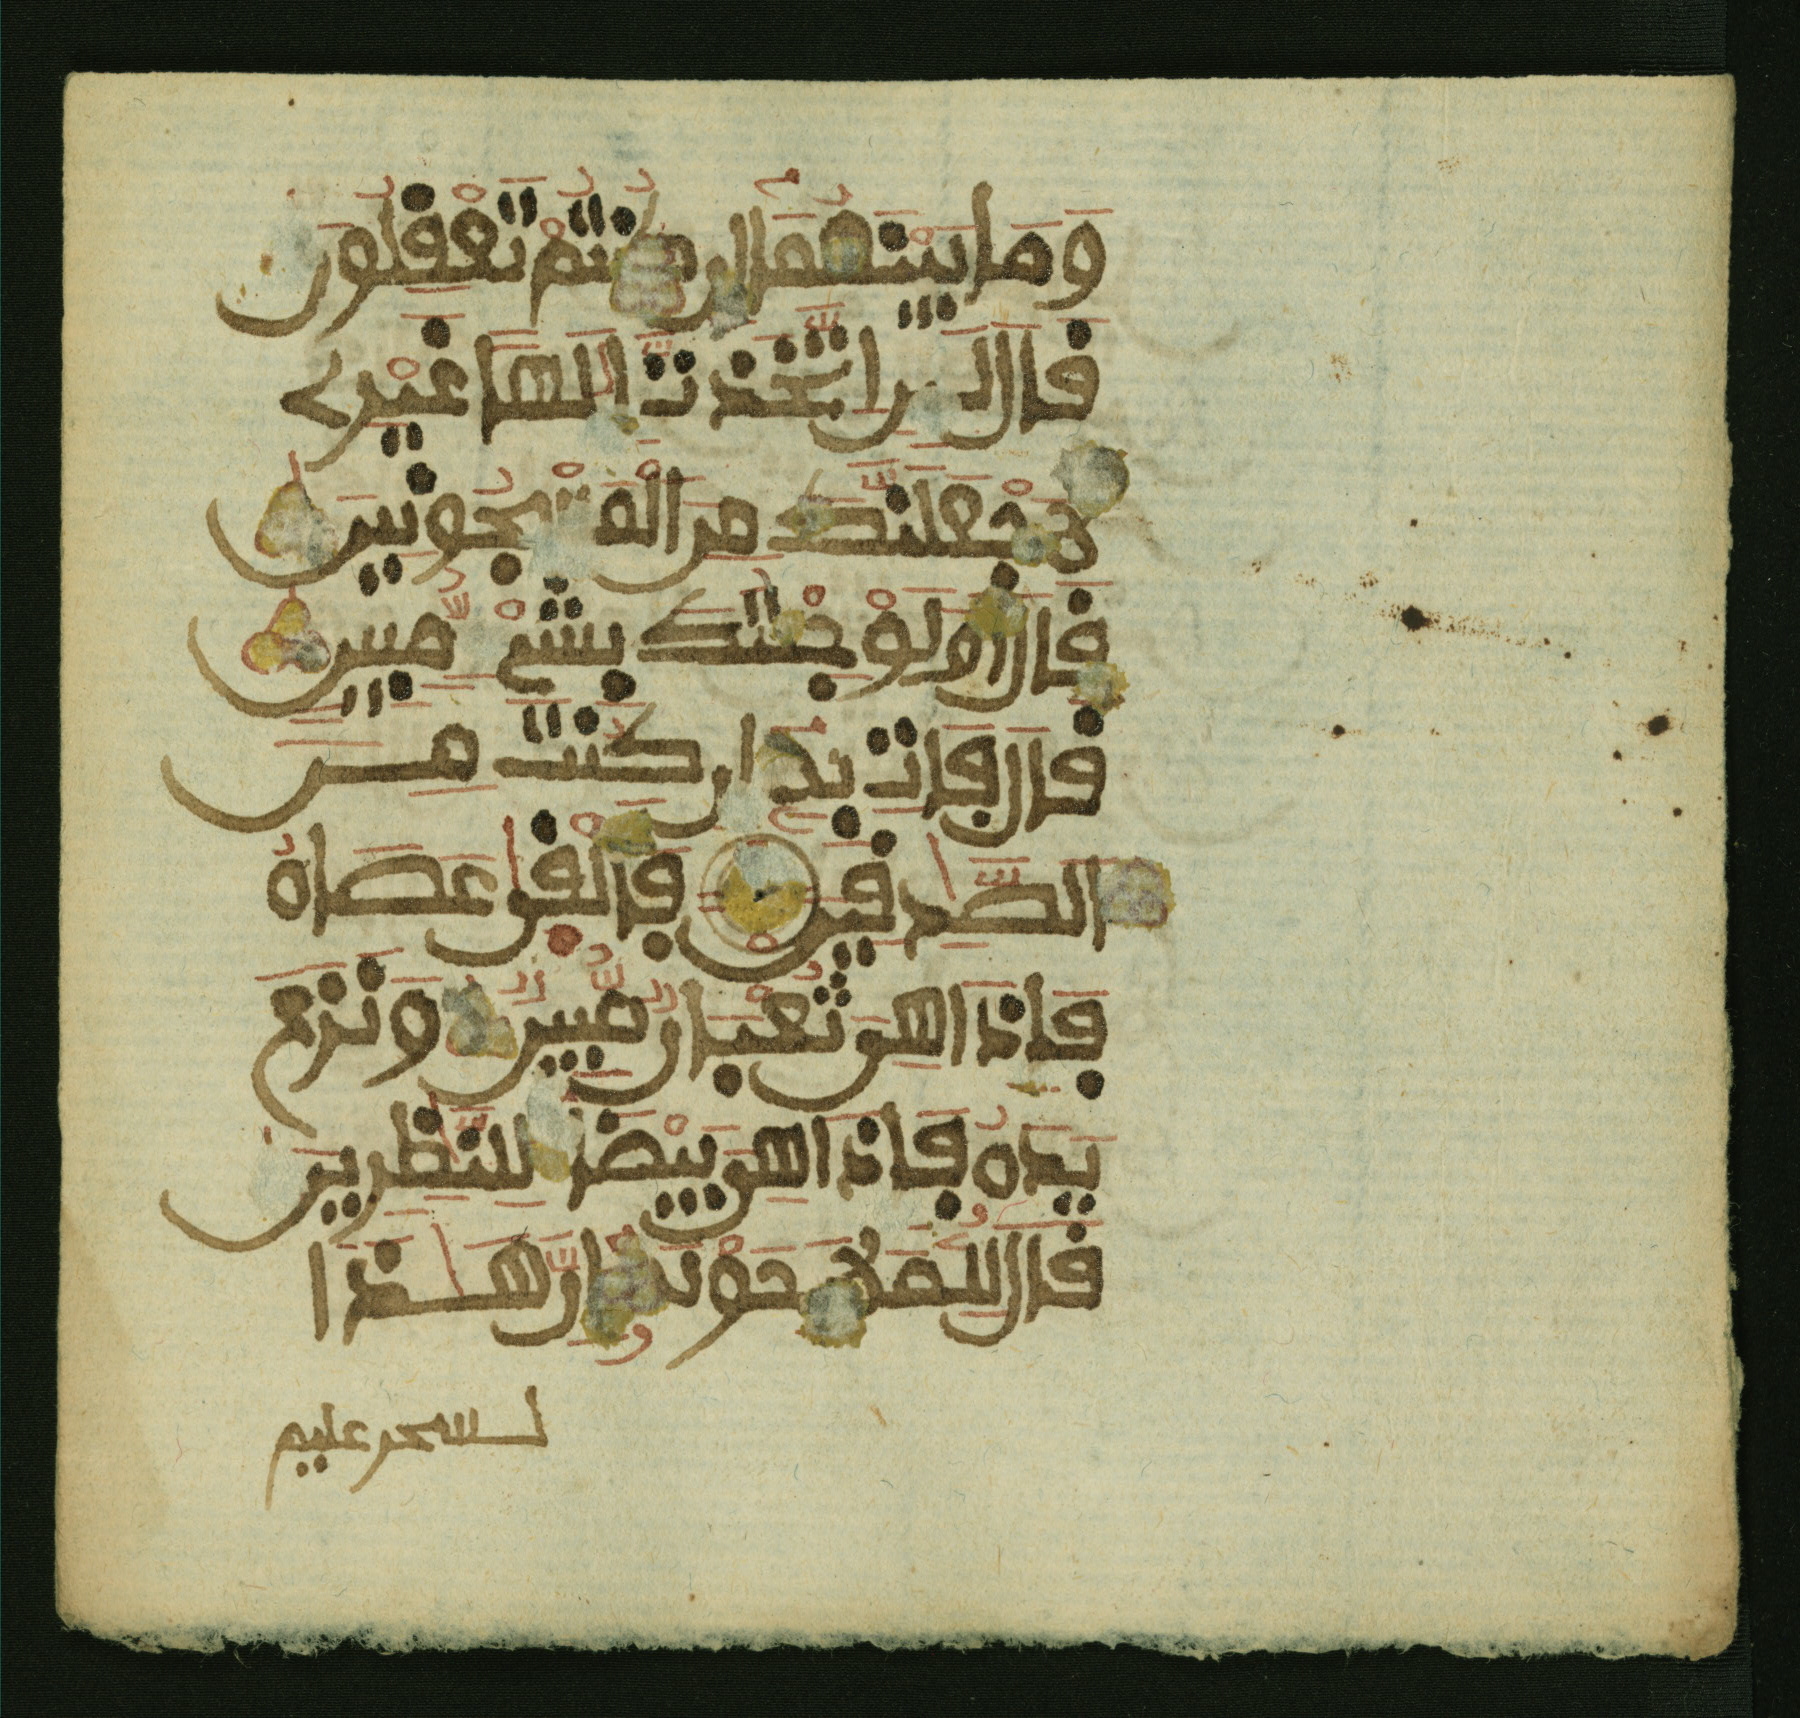 وَمَا بَيْنَهُمَا إِن كُنتُمْ تَعْقِلُونَ
قَالَ لَئِنِ اتَّخَذتَّ إِلَٰهًا غَيْرِى
لَأَجْعَلَنَّكَ مِنَ الْمَسْجُونِينَ
قَالَ أَوَلَوْ جِئْتُكَ بِشَىْءٍ مُّبِينٍ
قَالَ فَاتِ بِهِ إِن كُنتَ مِنَ
الصَّٰدِقِينَ فَأَلْقَىٰ عَصَاهُ
فَإِذَا هِىَ ثُعْبَانٌ مُّبِينٌ وَنَزَعَ
يَدَهُ فَإِذَا هِىَ بَيْضَاءُ لِلنَّٰظِرِينَ
قَالَ لِلْمَلَإِ حَوْلَهُ إِنَّ هَٰذَا
لسحر عليم